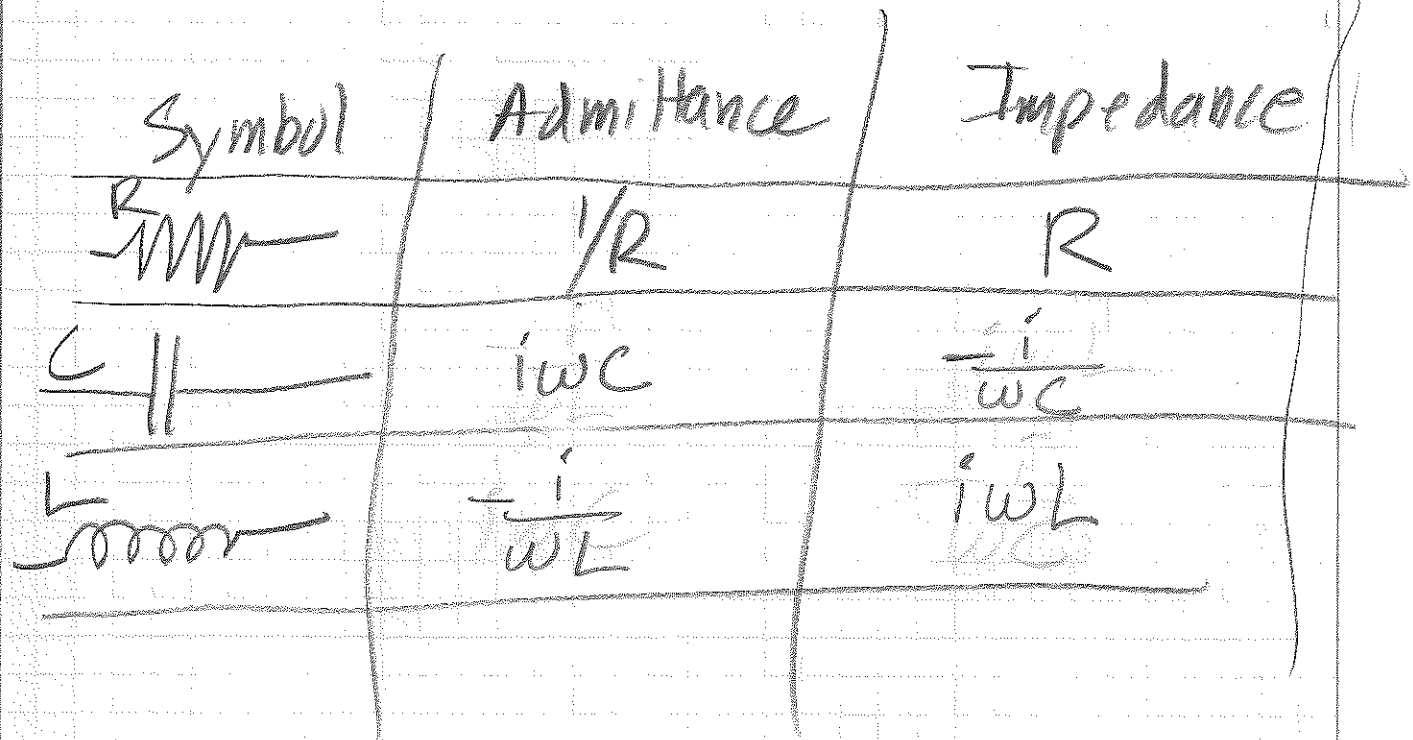 Symbol Admittance Impedance
R 1/R R
C iωC -i/ωC
L -i/ωL iωL